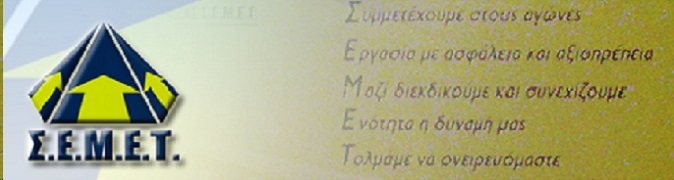 Συμμετέχουμε στους αγώνες
Εργασία με ασφάλεια και αξιοπρέπεια
Μαζί διεκδικούμε και συνεχίζουμε
Ενότητα η δυναμή μας
Τολμάμε να ονειρευόμαστε
Σ.Ε.Μ.Ε.Τ.